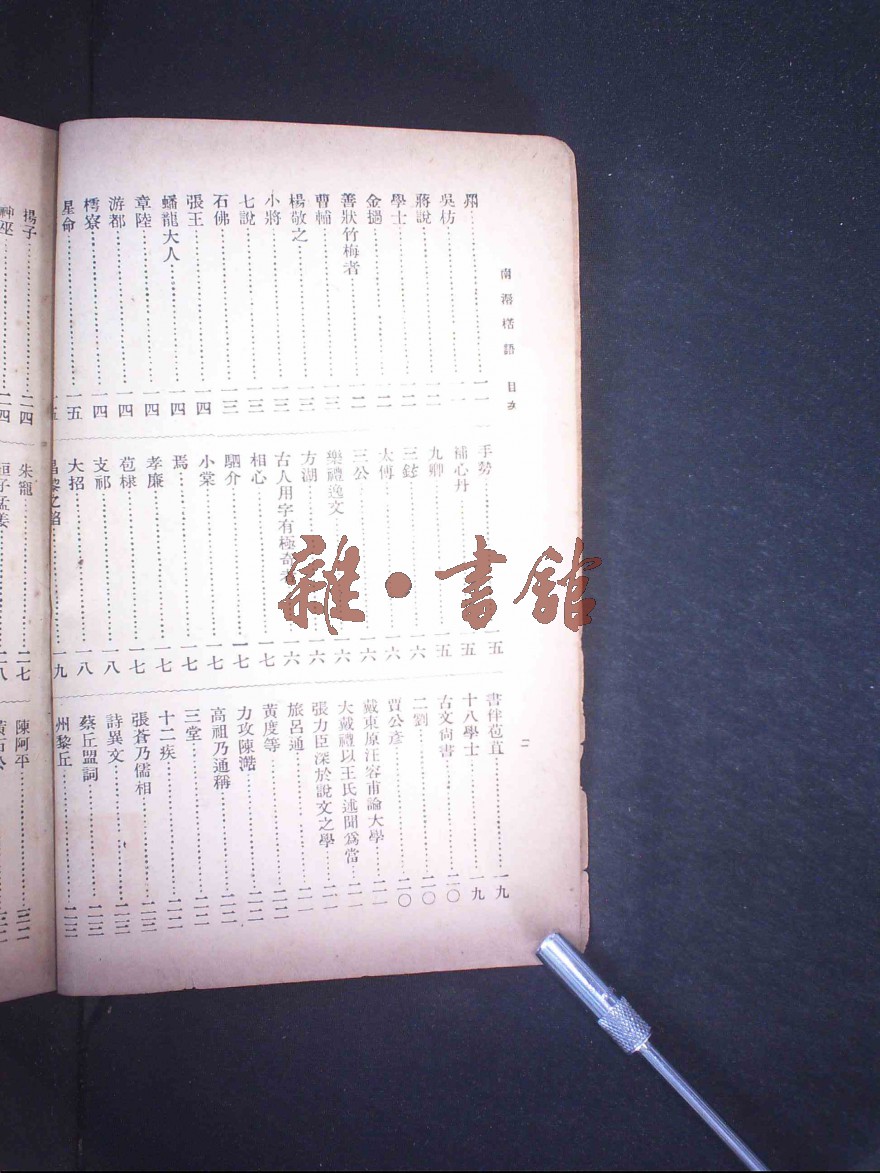 南漘楛語 目次
二
州⋯⋯一一
吳枋⋯⋯一一
蔣說⋯⋯一二
學士⋯⋯一二
金撾⋯⋯一二
善狀竹梅者⋯⋯一二
曹輔⋯⋯一三
楊敬之⋯⋯一三
小將⋯⋯一三
七說⋯⋯一三
石佛⋯⋯一三
張王⋯⋯一四
蟠龍大人⋯⋯一四
章陸⋯⋯一四
游都⋯⋯一四
樗寮⋯⋯一四
星命⋯⋯一五
手勢⋯⋯一五
補心丹⋯⋯一五
九卿⋯⋯一五
三鉉⋯⋯一六
太傅⋯⋯一六
三公⋯⋯一六
樂禮逸文⋯⋯一六
方湖⋯⋯一六
古人用字有極奇者⋯⋯一六
相心⋯⋯一七
駟介⋯⋯一七
小棠⋯⋯一七
焉⋯⋯一七
孝廉⋯⋯一七
苞棣⋯⋯一七
支祁⋯⋯一八
大招⋯⋯一八
昌黎之⋯⋯一九
書伴苞苴⋯⋯一九
十八學士⋯⋯一九
古文尚書⋯⋯二〇
二劉⋯⋯二〇
賈公彥⋯⋯二〇
戴東原汪容甫論大學⋯⋯二一
大戴禮以王氏述聞爲當⋯⋯二一
張力臣深於說文之學⋯⋯二一
旅呂通⋯⋯二一
黃度等⋯⋯二二
力攻陳澔⋯⋯二二
高祖乃通稱⋯⋯二二
三堂⋯⋯二二
十二疾⋯⋯二二
張蒼乃儒相⋯⋯二三
詩異文⋯⋯二三
蔡丘盟詞⋯⋯二三
州黎丘⋯⋯二三
揚子⋯⋯二四
神坐⋯⋯二四
朱寵⋯⋯二七
桓子孟姜⋯⋯二八
陳阿平⋯⋯三二
黃石公
雜·書館